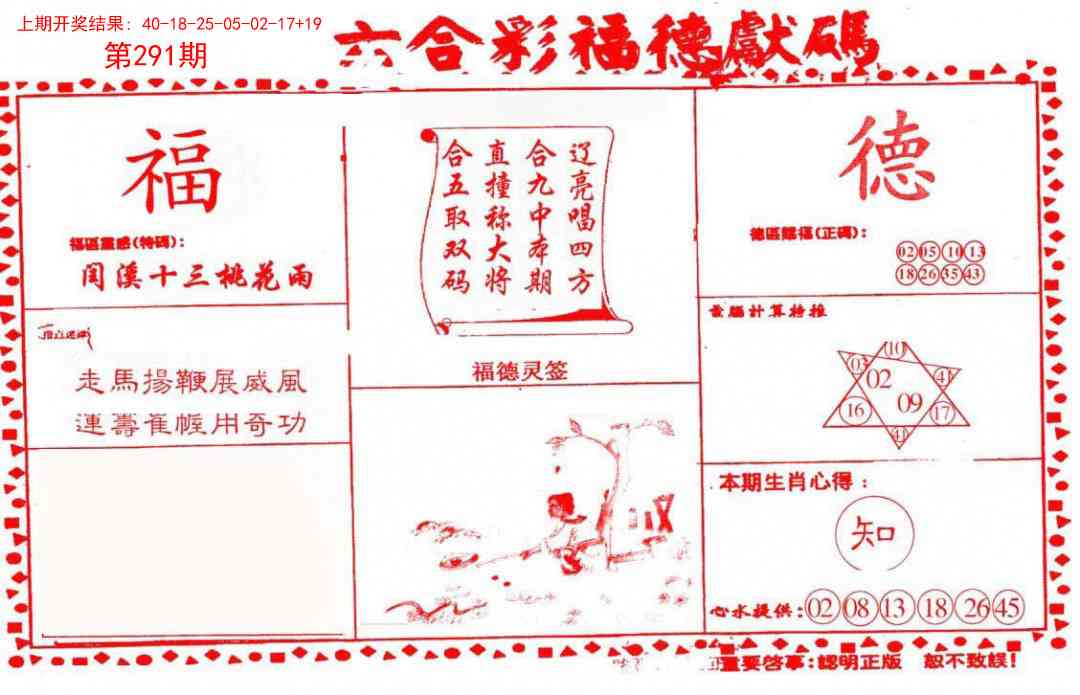 上期开奖结果: 40-18-25-05-02-17+19
第291期
六合彩福德獻碼
福
福區靈感(特碼):
閏溪十三桃花雨
走馬揚鞭展威風
運籌帷幄用奇功
辽亮唱四方
合九中本期
直撞称大将
合五取双码
福德灵签
德
德區賜福(正碼):
02 05 10 13
18 26 35 43
電腦計算特推
10
03 02 41
16 09 17
41
本期生肖心得:
知
心水提供: 02 08 13 18 26 45
重要啓事:認明正版 恕不致誤!